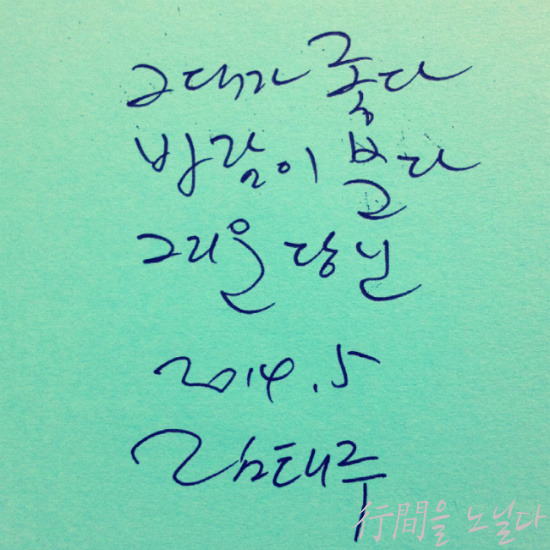 그대가 좋다
바람이 분다
그리운 당신
2014.5
림태주
行間을 노닐다